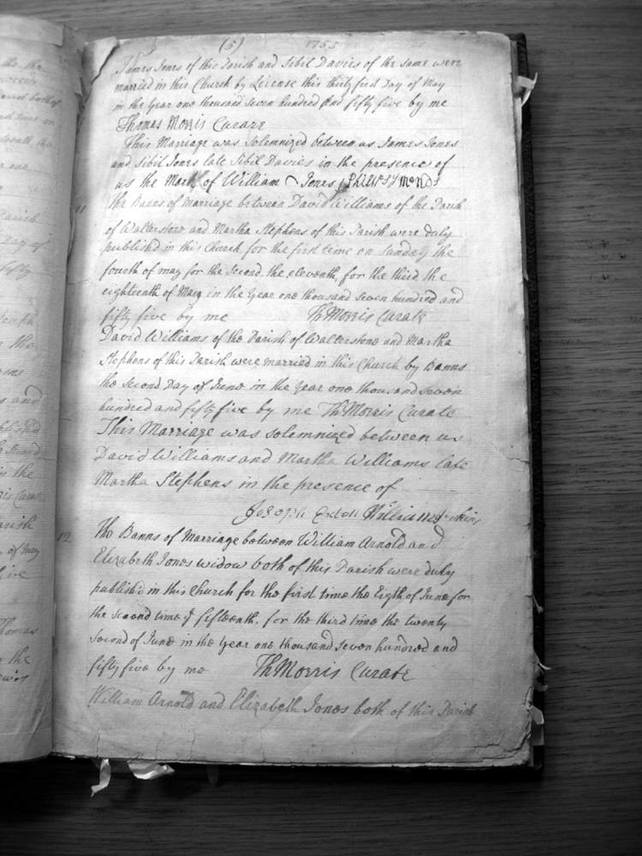 (5) 1755
James Jones of this Parish and Sibil Davies of the same were
married in this Church by Licence this thirty first Day of May
in the year one thousand seven hundred and fifty five by me
Thomas Morris Curate
This Marriage was Solemnized between us James Jones
and Sibil Jones late Sibil Davies in the presence of
us the Mark of William Jones
The Banns of Marriage between David Williams of the Parish
of Walterstone and Martha Stephens of this Parish were duly
published in this Church for the first time on Sunday the
fourth of may for the second the eleventh, for the third the
eighteenth of May in the year one thousand seven hundred and
fifty five by me Th Morris Curate
David Williams of the Parish of Walterstone and Martha
Stephens of this Parish were married in this Church by Banns
the second Day of June in the year one thousand seven
hundred and fifty five by me Th Morris Curate
This Marriage was solemnized between us
David Williams and Martha Williams late
Martha Stephens in the presence of
Joseph William
12
The Banns of Marriage between William Arnold and
Elizabeth Jones widow both of this Parish were duly
publish'd in this Church for the first time the Eigth of June for
the second time ye fifteenth, for the third time the twenty
second of June in the year one thousand seven hundred and
fifty five by me Th Morris Curate
William Arnold and Elizabeth Jones both of this Parish